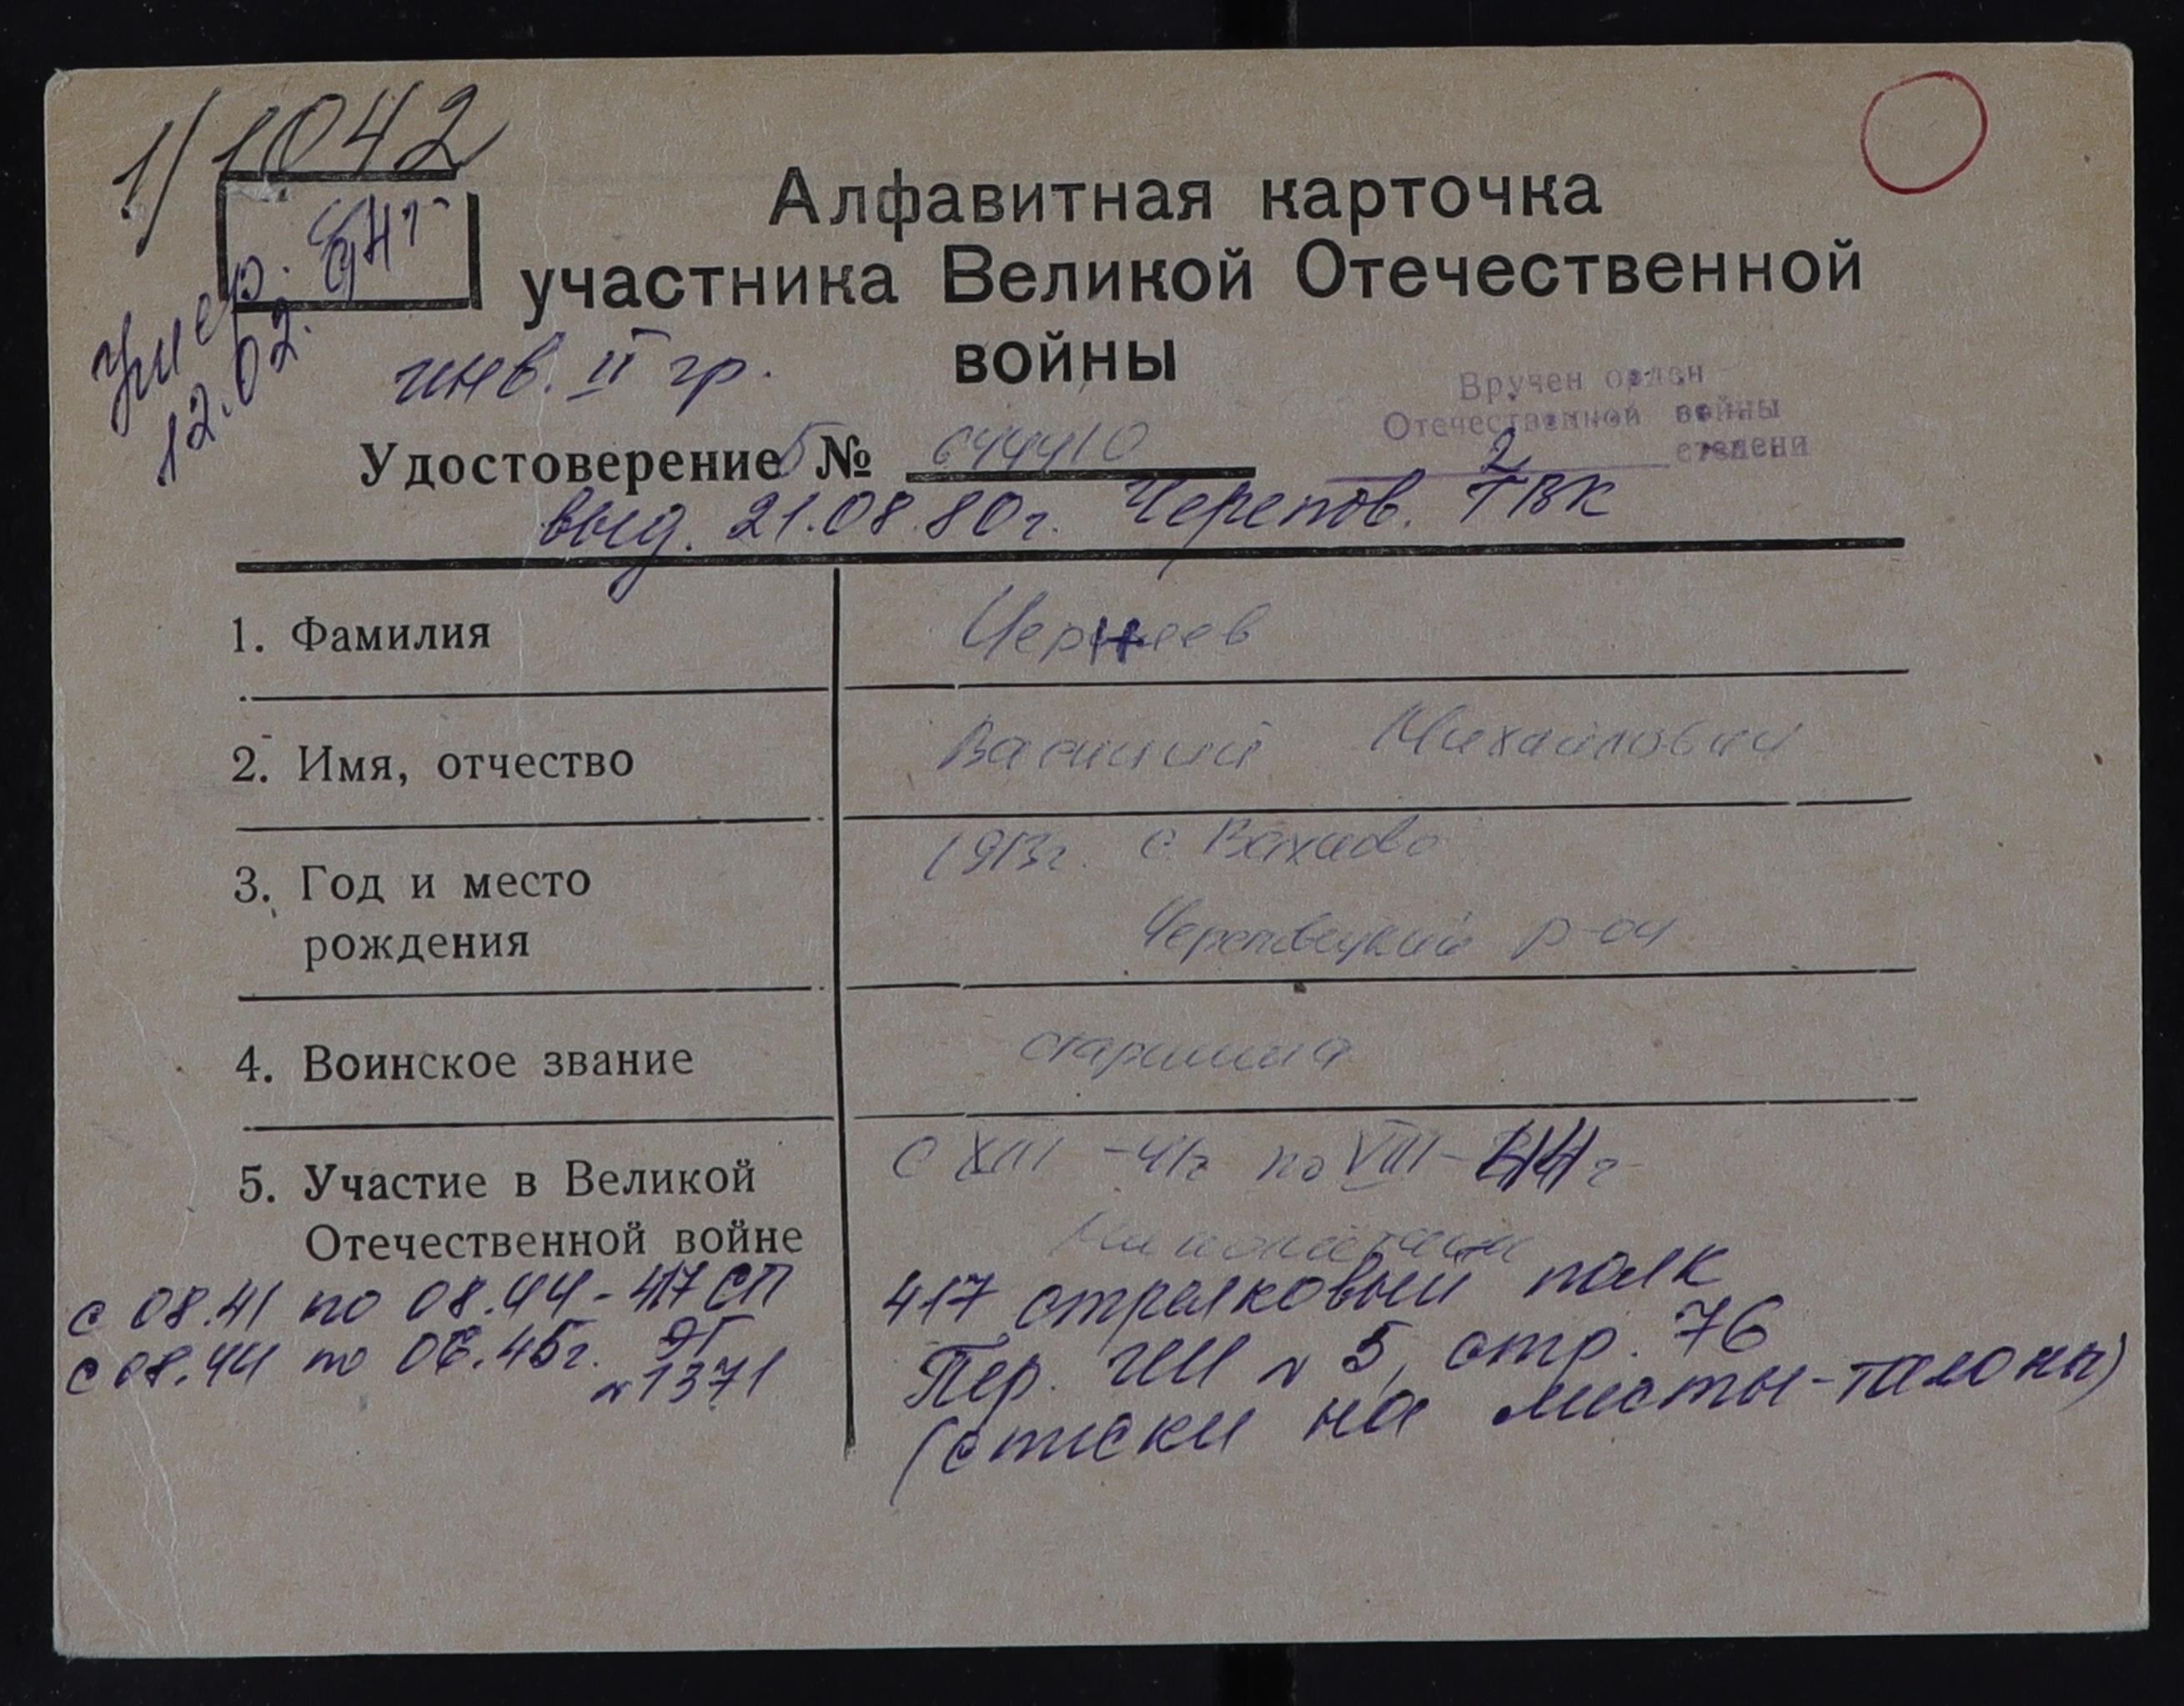 1/1042
Умер.
12.02.94г
Алфавитная карточка
участника Великой Отечественной
войны
инв. II гр.
Вручен орден
Отечественной войны
2 степени
Удостоверение Б № 644410
выд. 21.08.80г. Черепов. ГВК
1. Фамилия
Чернеев
2. Имя, отчество
Василий Михайлович
3. Год и место
рождения
1913г. с.
Череповецкий р-он
4. Воинское звание
старшина
5. Участие в Великой
Отечественной войне
с -41г по VIII-44г
417 стрелковый полк
Пер. ЧП № 5, стр. 76
(списки на листы-талоны)
с 08.41 по 08.44-417 СП
с 08.44 по 06.45г. ЭГ
№ 1371